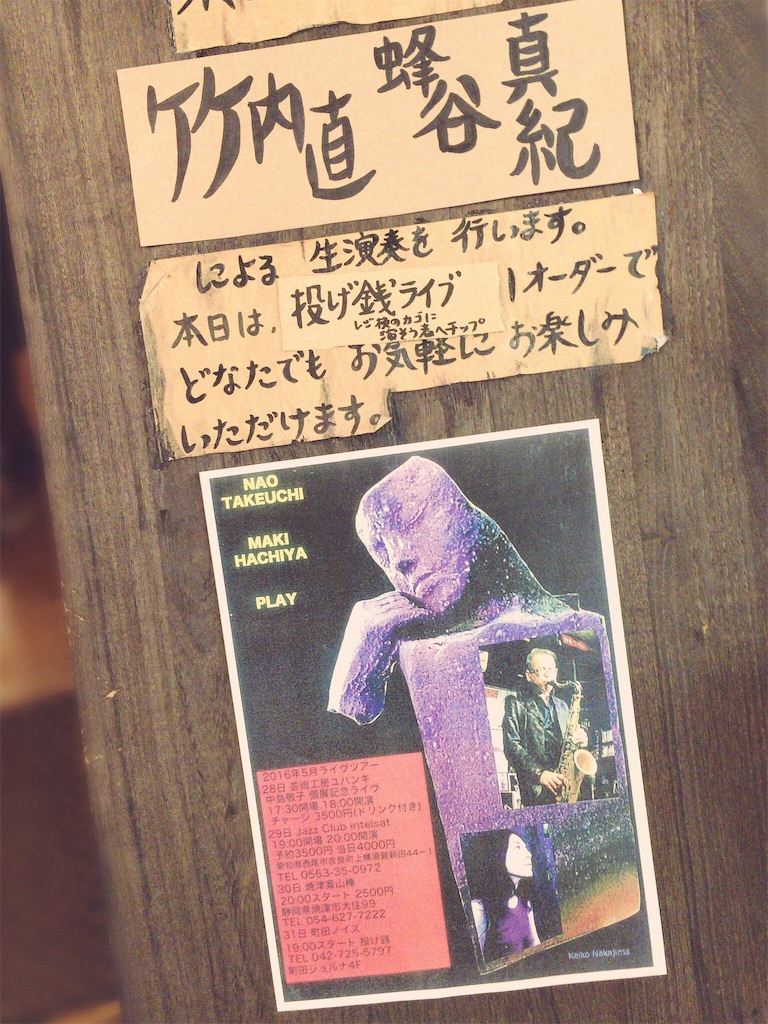 竹内直 蜂谷真紀
による 生演奏を 行います。
本日は、投げ銭ライブ 1オーダーで
レジ横のカゴに
演奏者へチップ
どなたでも お気軽に お楽しみ
いただけます。
NAO
TAKEUCHI
MAKI
HACHIYA
PLAY
2016年5月ライヴツアー
28日 芸術工房ユハンキ
中島敬子 個展記念ライヴ
17:30開場 18:00開演
チャージ 3500円(ドリンク付き)
29日 Jazz Club intelsat
19:00開場 20:00開演
予約3500円 当日4000円
愛知県西尾市吉良町上横須賀新田44-1
TEL 0563-35-0972
30日 焼津案山楝
20:00スタート 2500円
静岡県焼津市大住99
TEL 054-627-7222
31日 町田ノイズ
19:00スタート 投げ銭
TEL 042-725-5797
町田ジョルナ4F
Keiko Nakajima